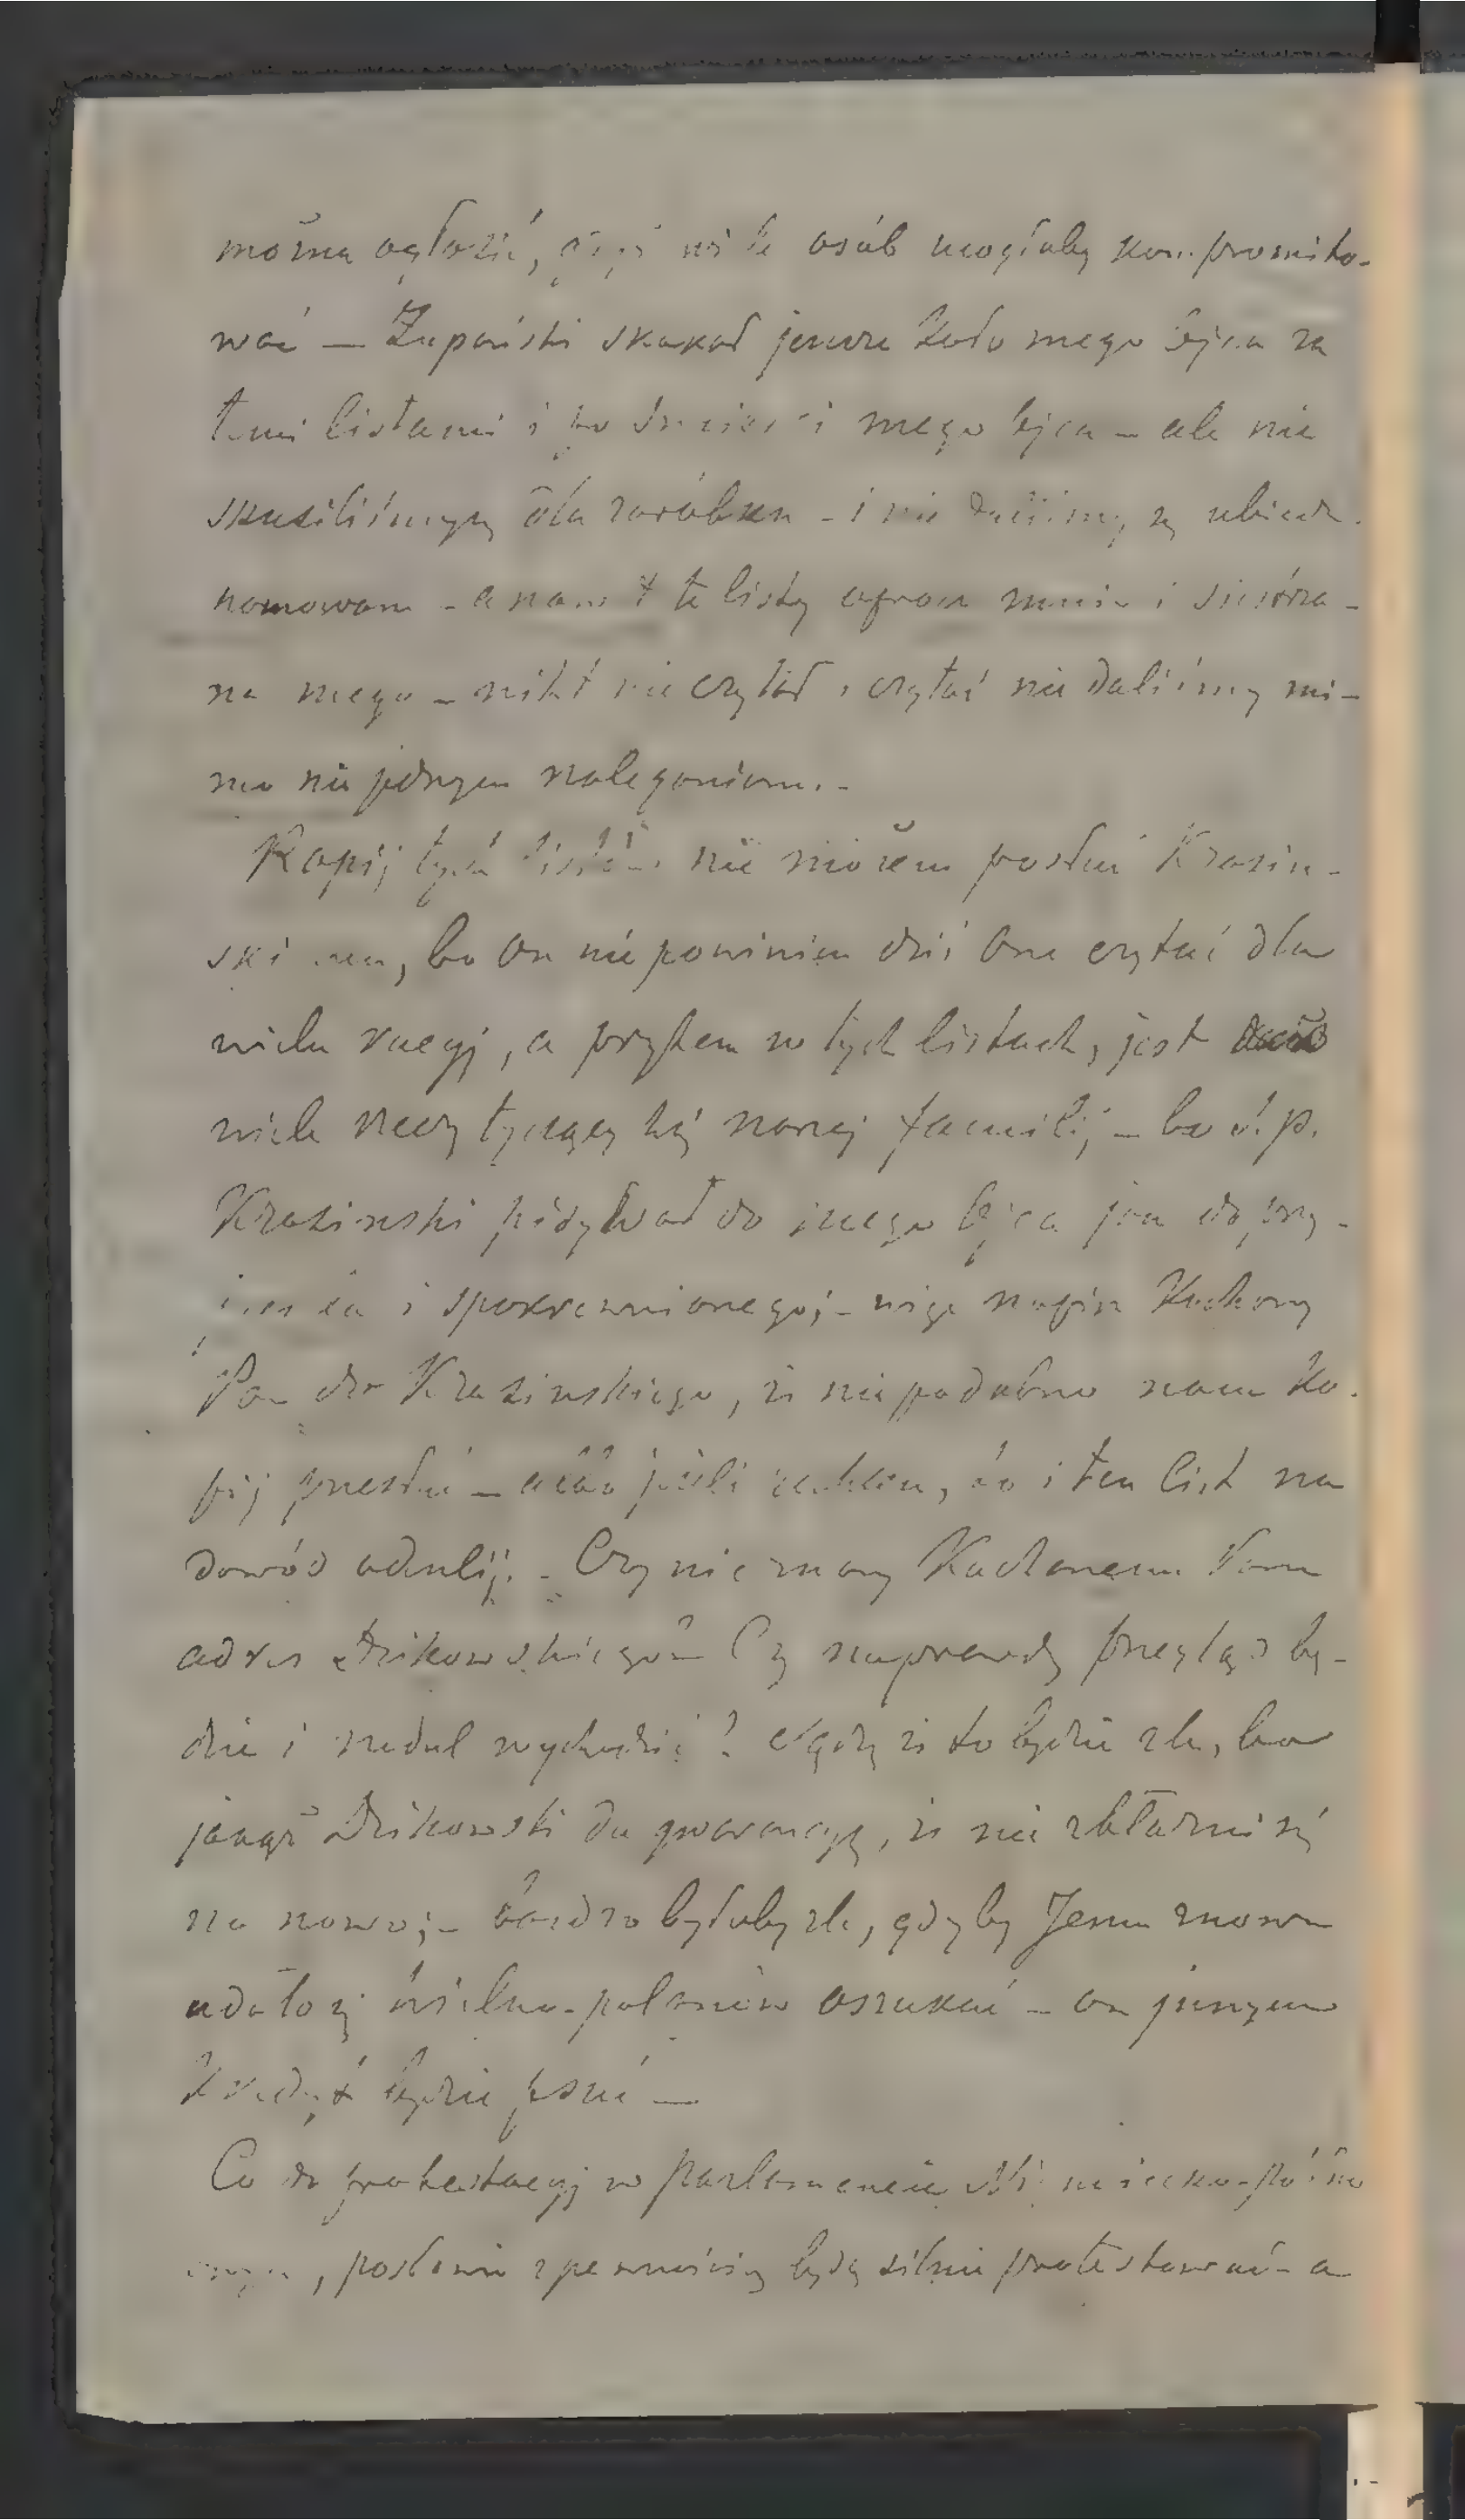 można ogłosić, gdyż wiele osób mogłaby kompromito-
wać — Żupański skakał jeszcze koło mego Ojca za
temi listami i po śmierci mego Ojca – ale nie
skusiliśmy się dla zarobku – i nie daliśmy się
– a nawet te listy oprócz mnie i
na mego – nikt nie czytał i czytać nie daliśmy mi-
mo nie jednym naleganiom. –
Kopij tych listów nie możem posłać Krasin-
skiemu, bo On nie powinien dziś One czytać dla
wielu racyj, a przytem w tych listach, jest
wiele rzeczy tyczących się naszej familij – bo ś. p.
Krasinski pisywał do mego Ojca jak do przy-
jaciela i spokrewnionego; – więc napisz Kochany
Pan do Krasinskiego, iż niepodobna nam ko-
pij przesłać – albo jeżeli zechcesz, to i ten list na
dowód – Czy nie masz Kochanemu Panu
adres Dzikowskiego? – Czy naprawdę przegląd bę-
dzie i nadal wychodzić? Sądzę iż to będzie źle, bo
jakąż Dzikowski da gwarancyę, iż nie zbłaźni się
na nowo; – bardzo byłoby źle, gdyby Jemu znowu
udało się wielko-polanów oszukać – on
będzie psuć —
Co do protestacyj w parlamencie Niemiecko-półno
, posłowie z pewnością będą silnie protestować – a